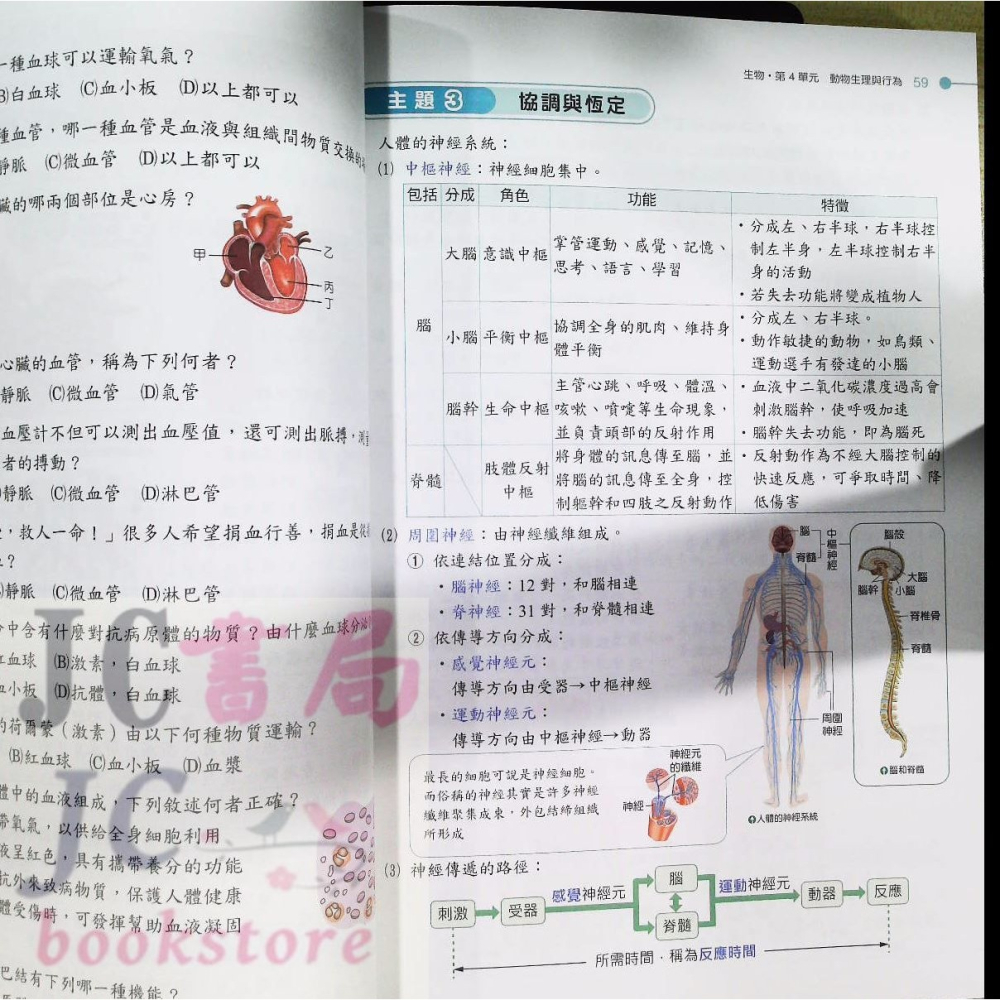 一種血球可以運輸氧氣?
B)白血球 (C)血小板 (D)以上都可以
種血管,哪一種血管是血液與組織間物質交換
靜脈 (C)微血管 (D)以上都可以
臟的哪兩個部位是心房?
甲
乙
丙
丁
心臟的血管,稱為下列何者?
靜脈 (C)微血管 (D)氣管
血壓計不但可以測出血壓值,還可測出脈搏,
者的搏動?
靜脈 (C)微血管 (D)淋巴管
,救人一命!」很多人希望捐血行善,捐血是從
?
靜脈 (C)微血管 (D)淋巴管
中含有什麼對抗病原體的物質?由什麼血球分泌
紅血球 (B)激素,白血球
血小板 (D)抗體,白血球
的荷爾蒙(激素)由以下何種物質運輸?
(B)紅血球 (C)血小板 (D)血漿
體中的血液組成,下列敘述何者正確?
帶氧氣,以供給全身細胞利用
液呈紅色,具有攜帶養分的功能
抗外來致病物質,保護人體健康
體受傷時,可發揮幫助血液凝固
巴結有下列哪一種機能?
JC書局
JC
bookstore
生物・第4單元 動物生理與行為 59
主題3 協調與恆定
人體的神經系統:
(1) 中樞神經:神經細胞集中。
包括 分成 角色 功能 特徵
腦
大腦 意識中樞
掌管運動、感覺、記憶、
思考、語言、學習
・分成左、右半球,右半球控
制左半身,左半球控制右半
身的活動
・若失去功能將變成植物人
小腦 平衡中樞
協調全身的肌肉、維持身
體平衡
・分成左、右半球。
・動作敏捷的動物,如鳥類、
運動選手有發達的小腦
腦幹 生命中樞
主管心跳、呼吸、體溫、
咳嗽、噴嚏等生命現象,
並負責頭部的反射作用
・血液中二氧化碳濃度過高會
刺激腦幹,使呼吸加速
・腦幹失去功能,即為腦死
脊髓
肢體反射
中樞
將身體的訊息傳至腦,並
將腦的訊息傳至全身,控
制軀幹和四肢之反射動作
・反射動作為不經大腦控制的
快速反應,可爭取時間、降
低傷害
(2) 周圍神經:由神經纖維組成。
① 依連結位置分成:
・腦神經:12 對,和腦相連
・脊神經:31 對,和脊髓相連
② 依傳導方向分成:
・感覺神經元:
傳導方向由受器→中樞神經
・運動神經元:
傳導方向由中樞神經→動器
腦
脊髓
中樞神經
周圍
神經
人體的神經系統
腦殼
大腦
腦幹
小腦
脊椎骨
脊髓
腦和脊髓
最長的細胞可說是神經細胞。
而俗稱的神經其實是許多神經
纖維聚集成束,外包結締組織
所形成
神經元
的纖維
神經
(3) 神經傳遞的路徑:
刺激 受器 感覺神經元 腦 脊髓 運動神經元 動器 反應
所需時間,稱為反應時間